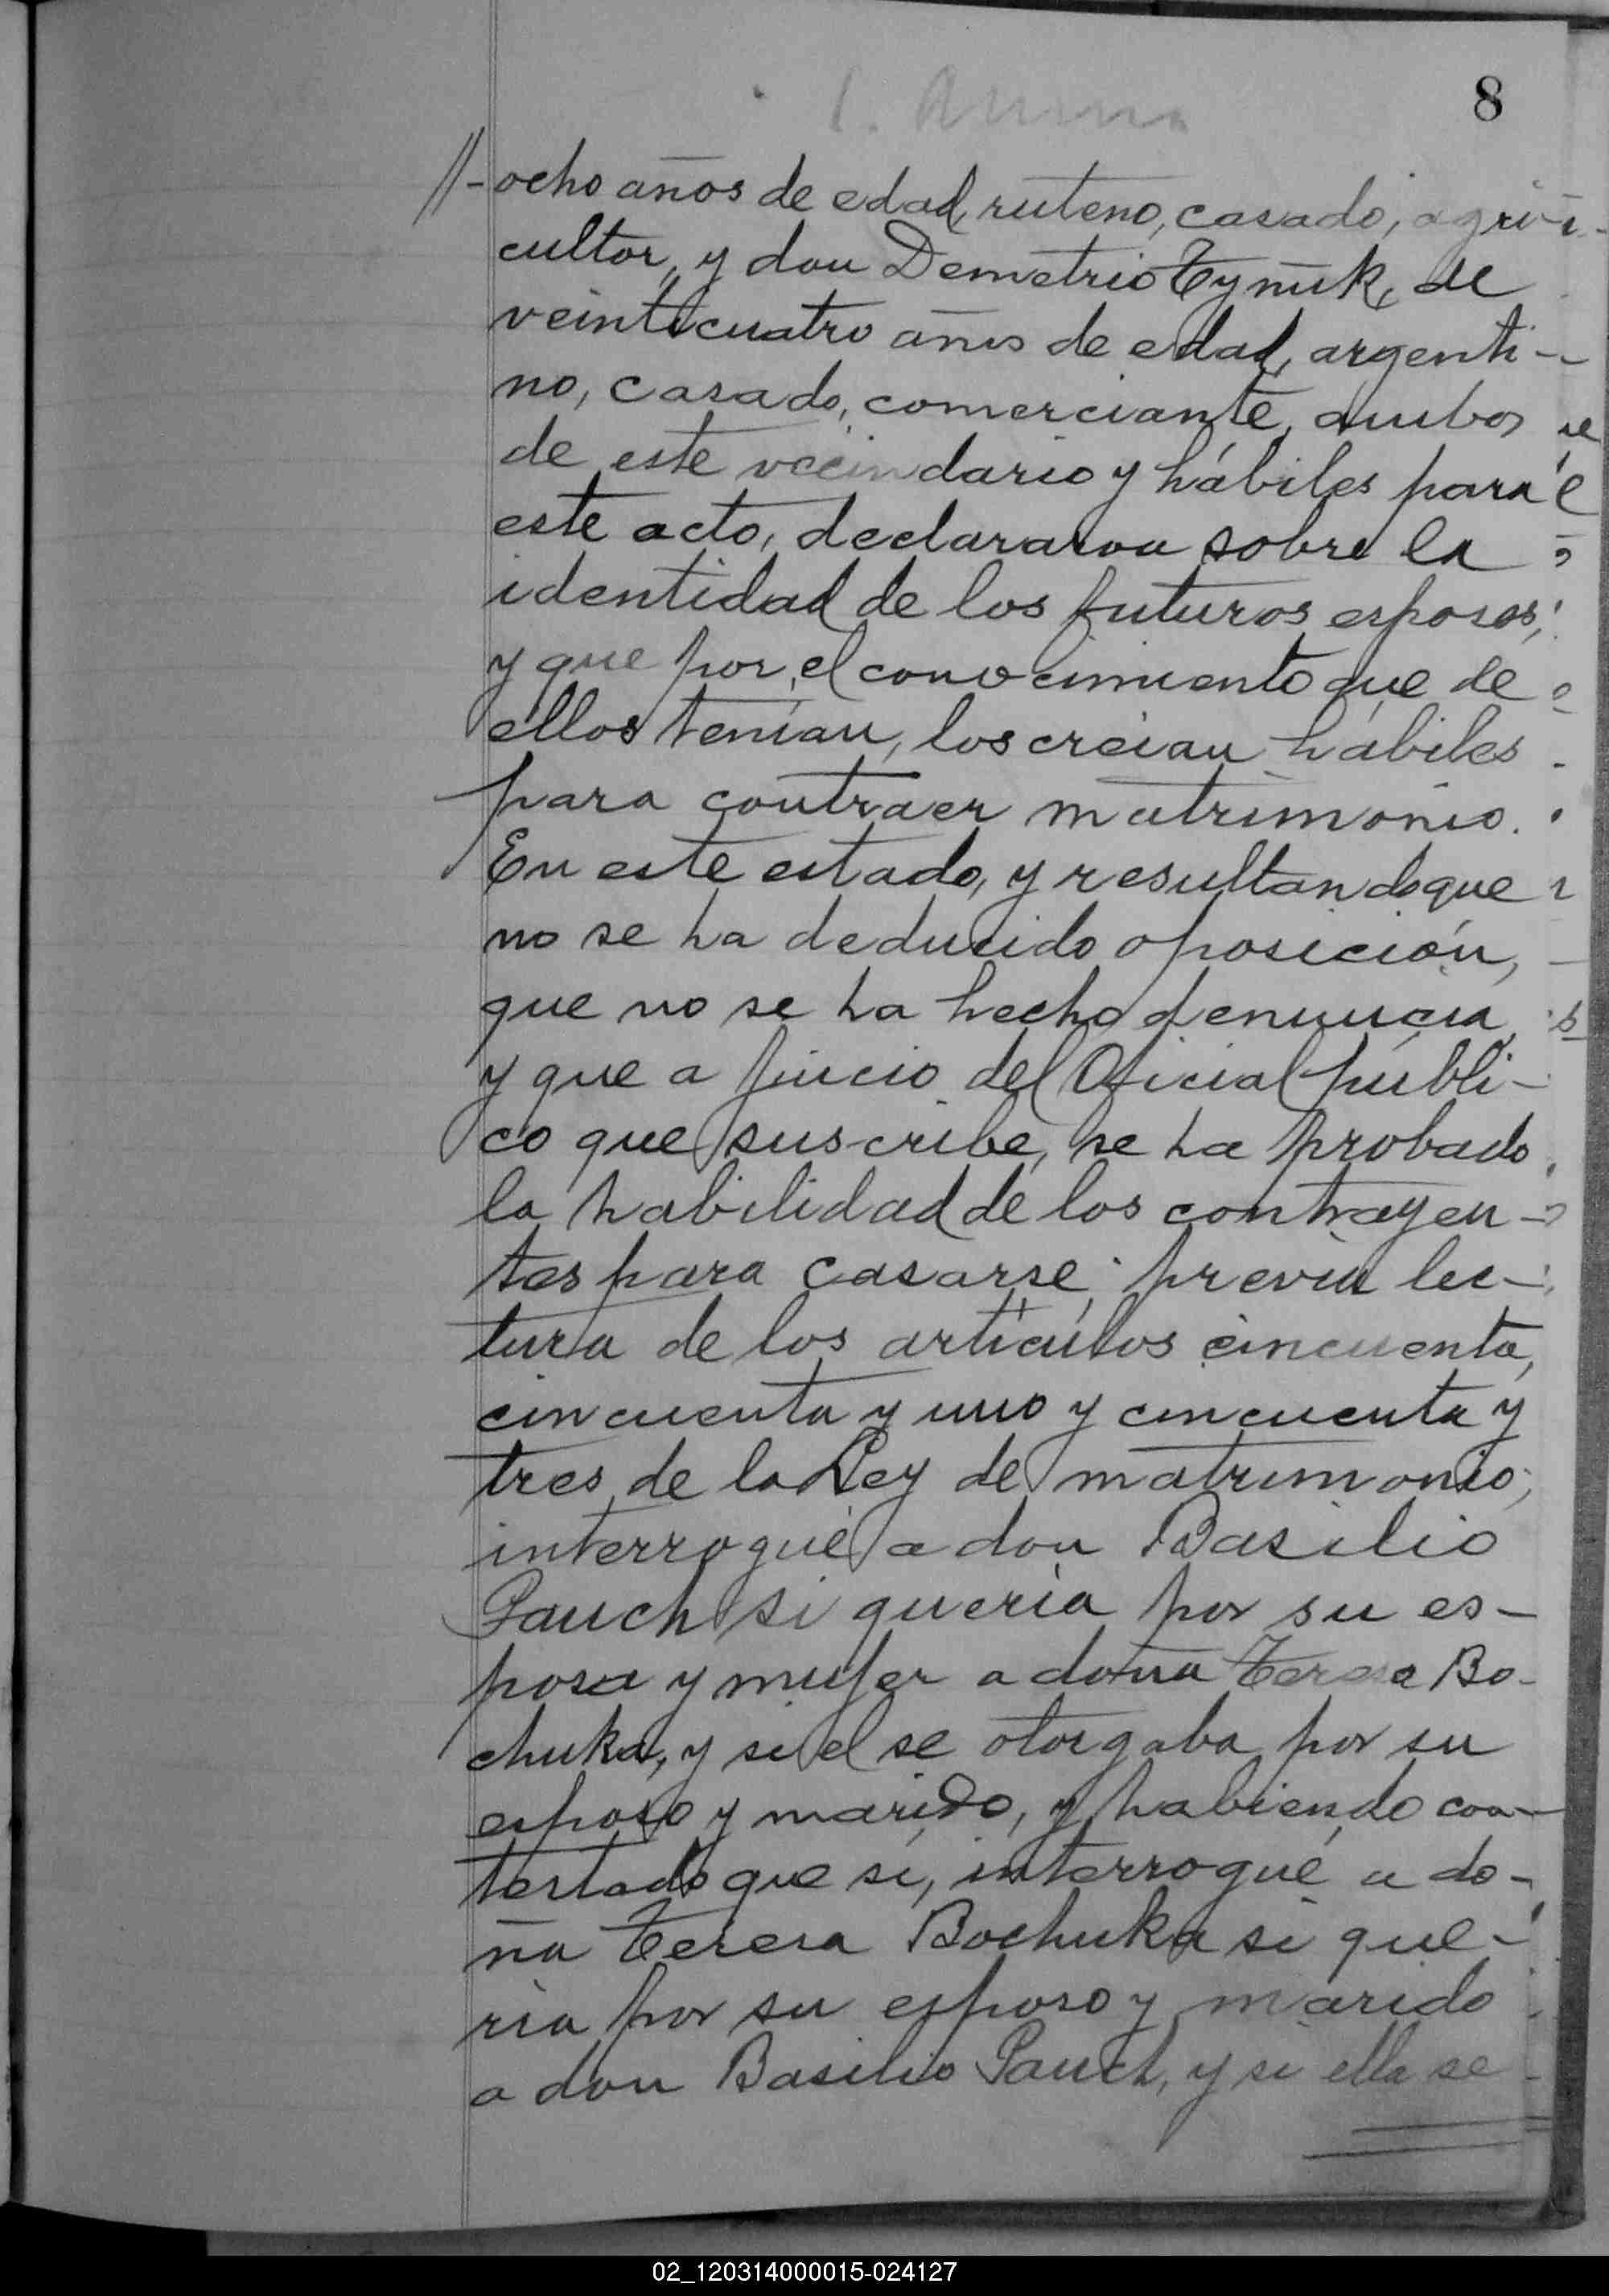 8
//-ocho años de edad, ruteno, casado, agri-
cultor, y don Demetrio Tyñuk, de
veinticuatro años de edad, argenti-
no, casado, comerciante, ambos
de este vecindario y hábiles para
este acto, declararon sobre la
identidad de los futuros esposos,
y que por el conocimiento que de
ellos tenían, los creían hábiles
para contraer matrimonio.
En este estado, y resultando que
no se ha deducido oposición,
que no se ha hecho denuncia
y que a juicio del Oficial públi-
co que suscribe, se ha probado
la habilidad de los contrayen-
tes para casarse; previa lec-
tura de los artículos cincuenta,
cincuenta y uno y cincuenta y
tres de la Ley de matrimonio;
interrogué a don Basilio
Pauch si quería por su es-
posa y mujer a doña Teresa Bo-
chuka, y si el se otorgaba por su
esposo y marido, y habiendo con-
testado que sí, interrogué a do-
ña Teresa Bochuka si que-
ría por su esposo y marido
a don Basilio Pauch, y si ella se
02_120314000015-024127